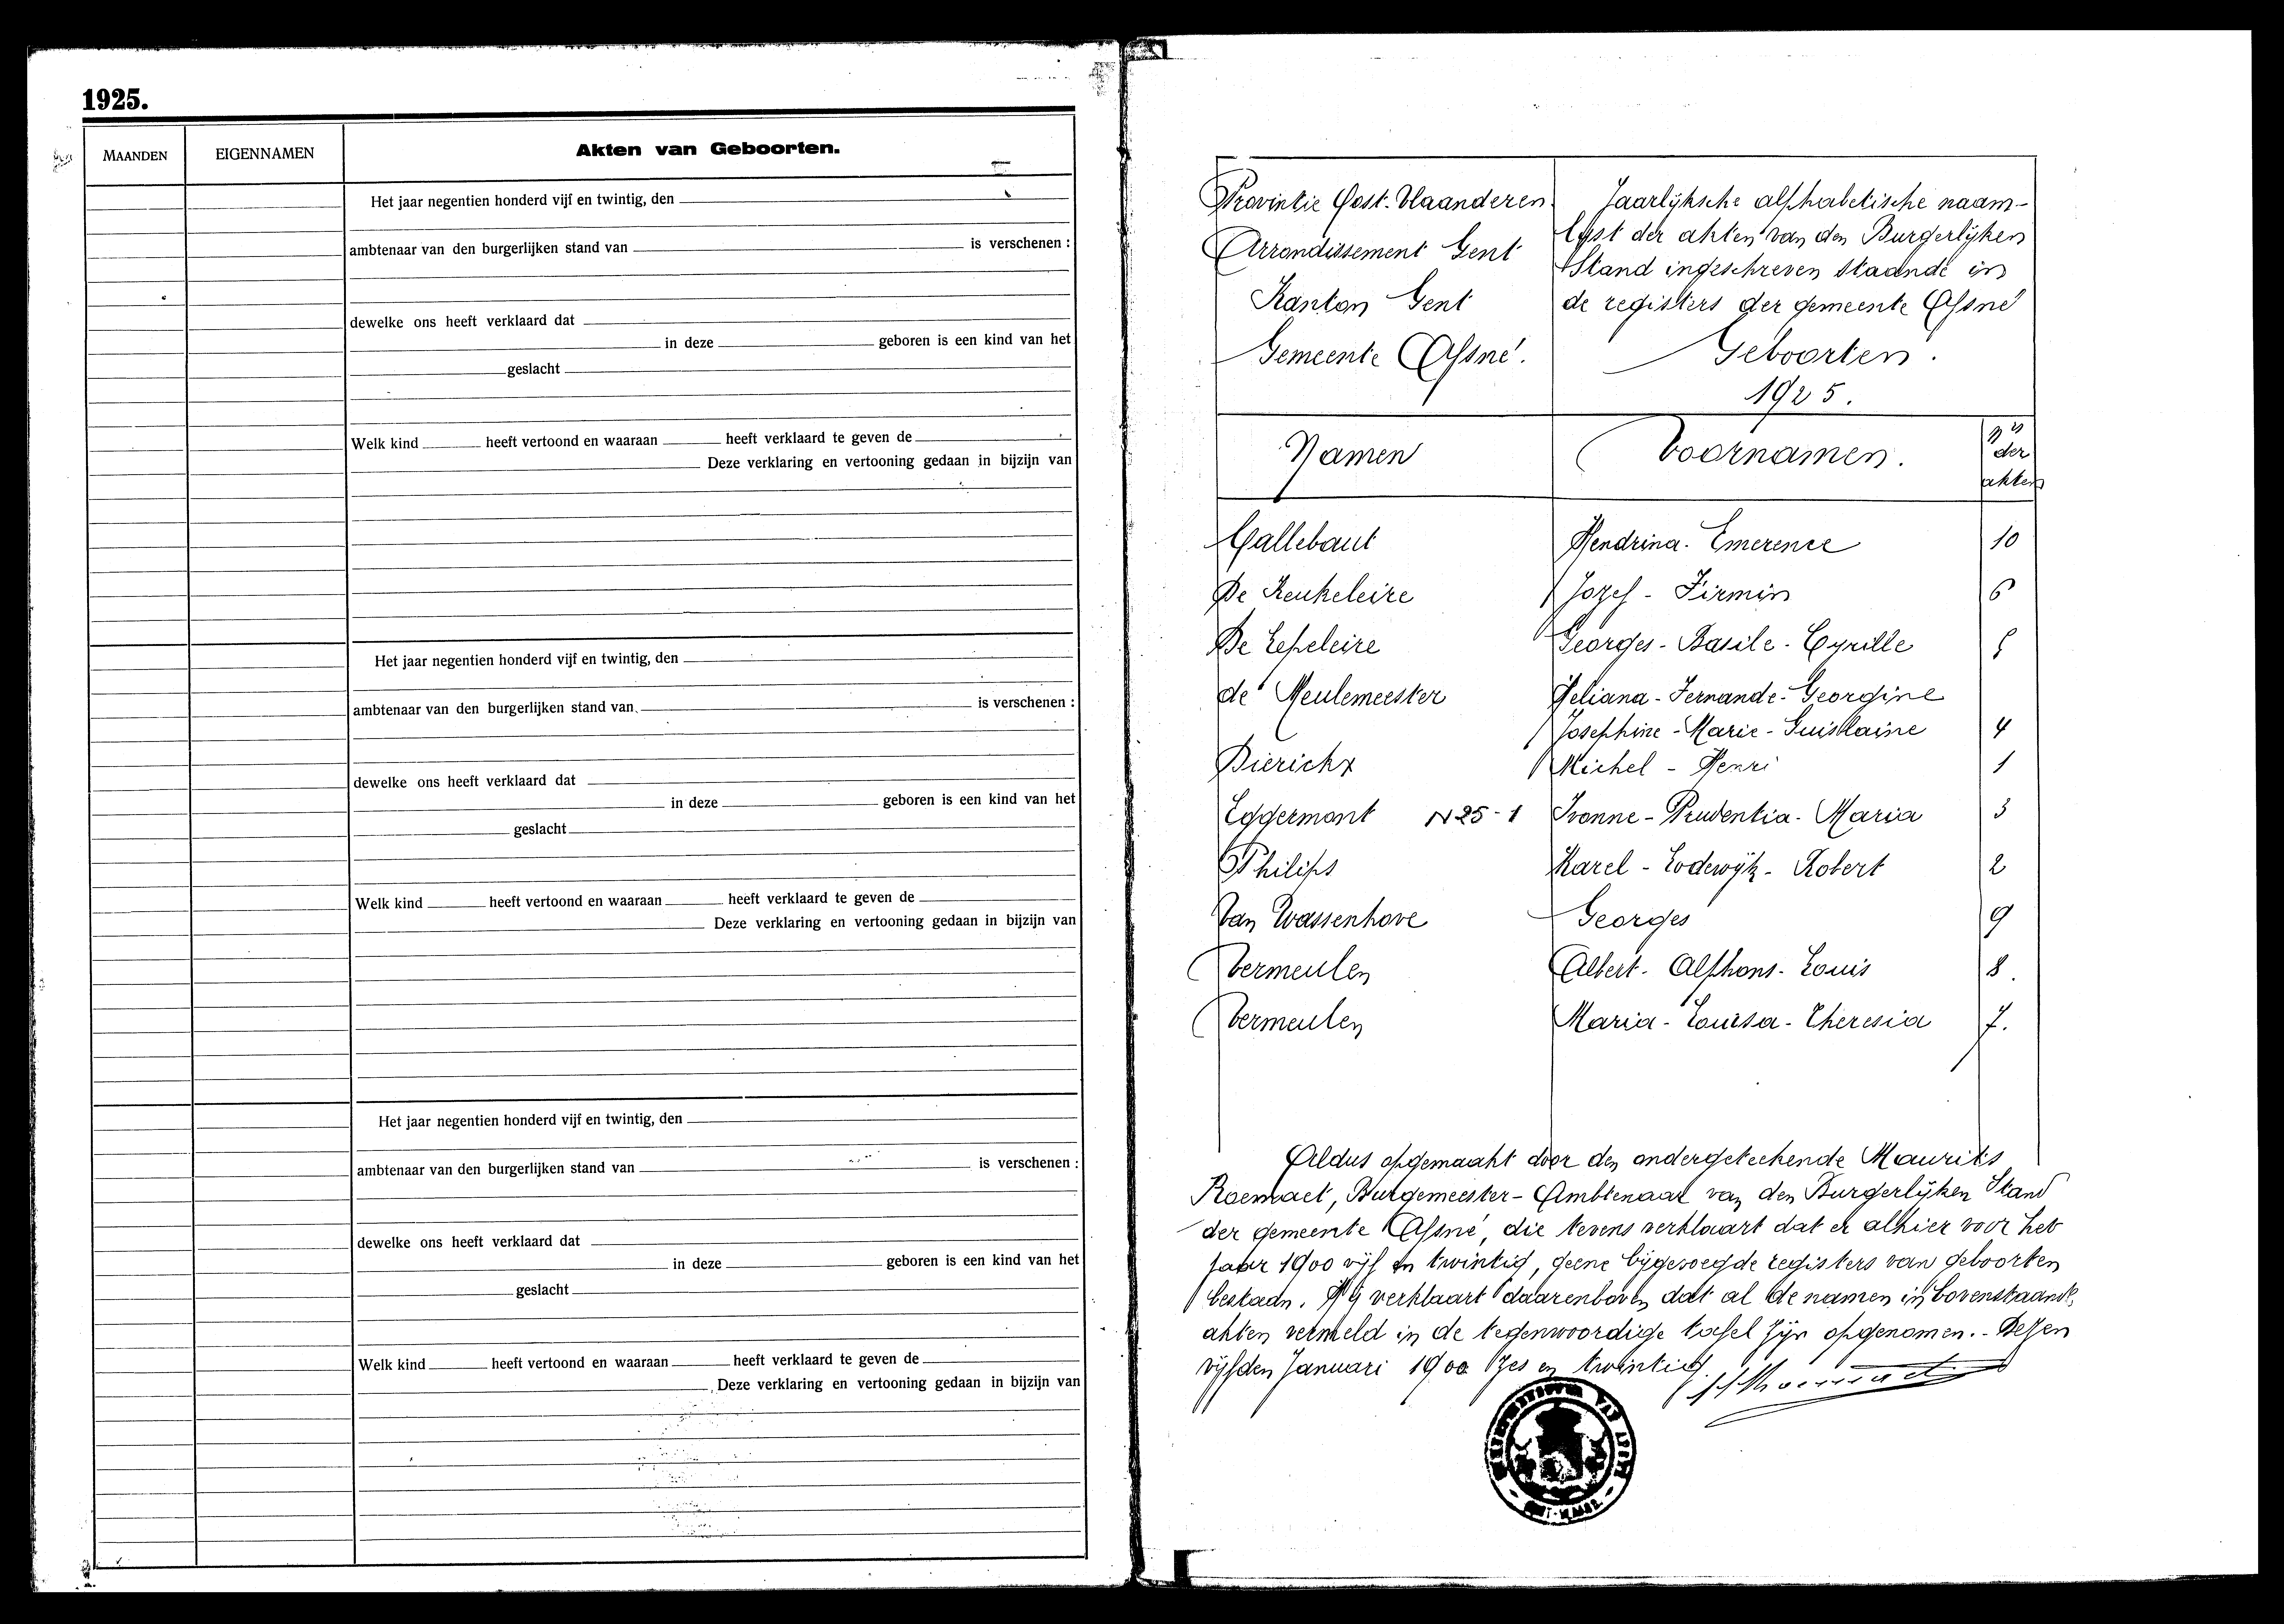 1925.
MAANDEN
EIGENNAMEN
Akten van Geboorten.
Het jaar negentien honderd vijf en twintig, den
ambtenaar van den burgerlijken stand van is verschenen :
dewelke ons heeft verklaard dat
in deze geboren is een kind van het
geslacht
Welk kind heeft vertoond en waaraan heeft verklaard te geven de
Deze verklaring en vertooning gedaan in bijzijn van
Het jaar negentien honderd vijf en twintig, den
ambtenaar van den burgerlijken stand van is verschenen :
dewelke ons heeft verklaard dat
in deze geboren is een kind van het
geslacht
Welk kind heeft vertoond en waaraan heeft verklaard te geven de
Deze verklaring en vertooning gedaan in bijzijn van
Het jaar negentien honderd vijf en twintig, den
ambtenaar van den burgerlijken stand van is verschenen :
dewelke ons heeft verklaard dat
in deze geboren is een kind van het
geslacht
Welk kind heeft vertoond en waaraan heeft verklaard te geven de
Deze verklaring en vertooning gedaan in bijzijn van
Provintie Oost-Vlaanderen
Arrondissement Gent
Kanton Gent
Gemeente Afsné.
Jaarlijksche alphabetische naam-
lyst der akten van den Burgerlijken
Stand ingeschreven staande in
de registers der gemeente Afsné
Geboorten.
1925.
Namen Voornamen. der akten
Callebaut Hendrina-Emerence 10
De Keukeleire Jozef - Firmin 6
De Lepeleire Georges-Basile-Cyrille 5
de Meulemeester Jeliana-Fernande-Georgine
Josephine-Marie-Guislaine 4
Dierickx Michel - Henri 1
Eggermont N25-1 Ivonne-Prudentia-Maria 3
Philips Karel-Lodewijk-Robert 2
Van Wassenhove Georges 9
Vermeulen Albert-Alphons-Louis 8.
Vermeulen Maria-Louisa-Theresia 7.
Aldus opgemaakt door den ondergeteekende Maurits
Roemaet, Burgemeester-Ambtenaar van den Burgerlijken Stand
der gemeente Afsné, die tevens verklaart dat er alhier voor het
jaar 1900 vijf en twintig, geene bijgevoegde registers van geboorten
bestaan. Hij verklaart daarenboven dat al de namen in bovenstaande
akten vermeld in de tegenwoordige tafel zijn opgenomen.- Dessen
vijfden Januari 1900 zes en twintig